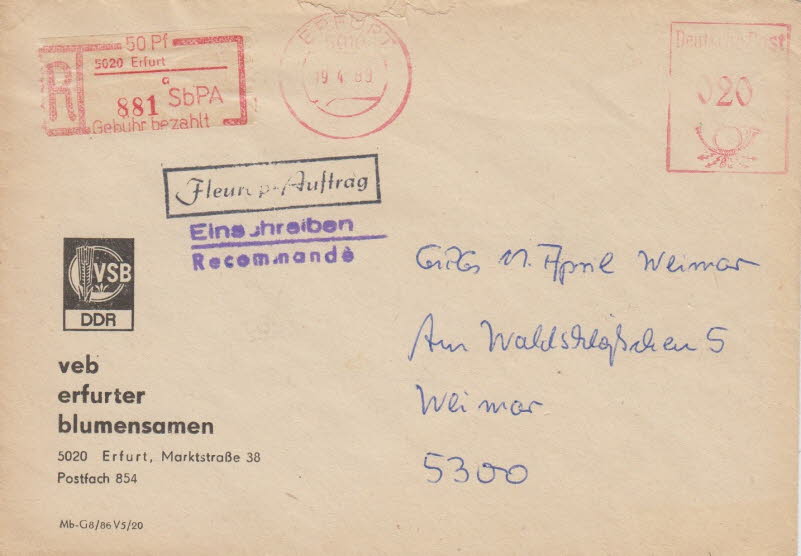 50 Pf
R
5020 Erfurt
a
881 SbPA
Gebühr bezahlt
ERFURT
5010
19 4 89
Deutsche Post
020
Fleurop-Auftrag
Einschreiben
Recommandé
VSB
DDR
veb
erfurter
blumensamen
5020 Erfurt, Marktstraße 38
Postfach 854
Mb-G8/86 V5/20
11. April Weimar
Am Waldschlößchen 5
Weimar
5300